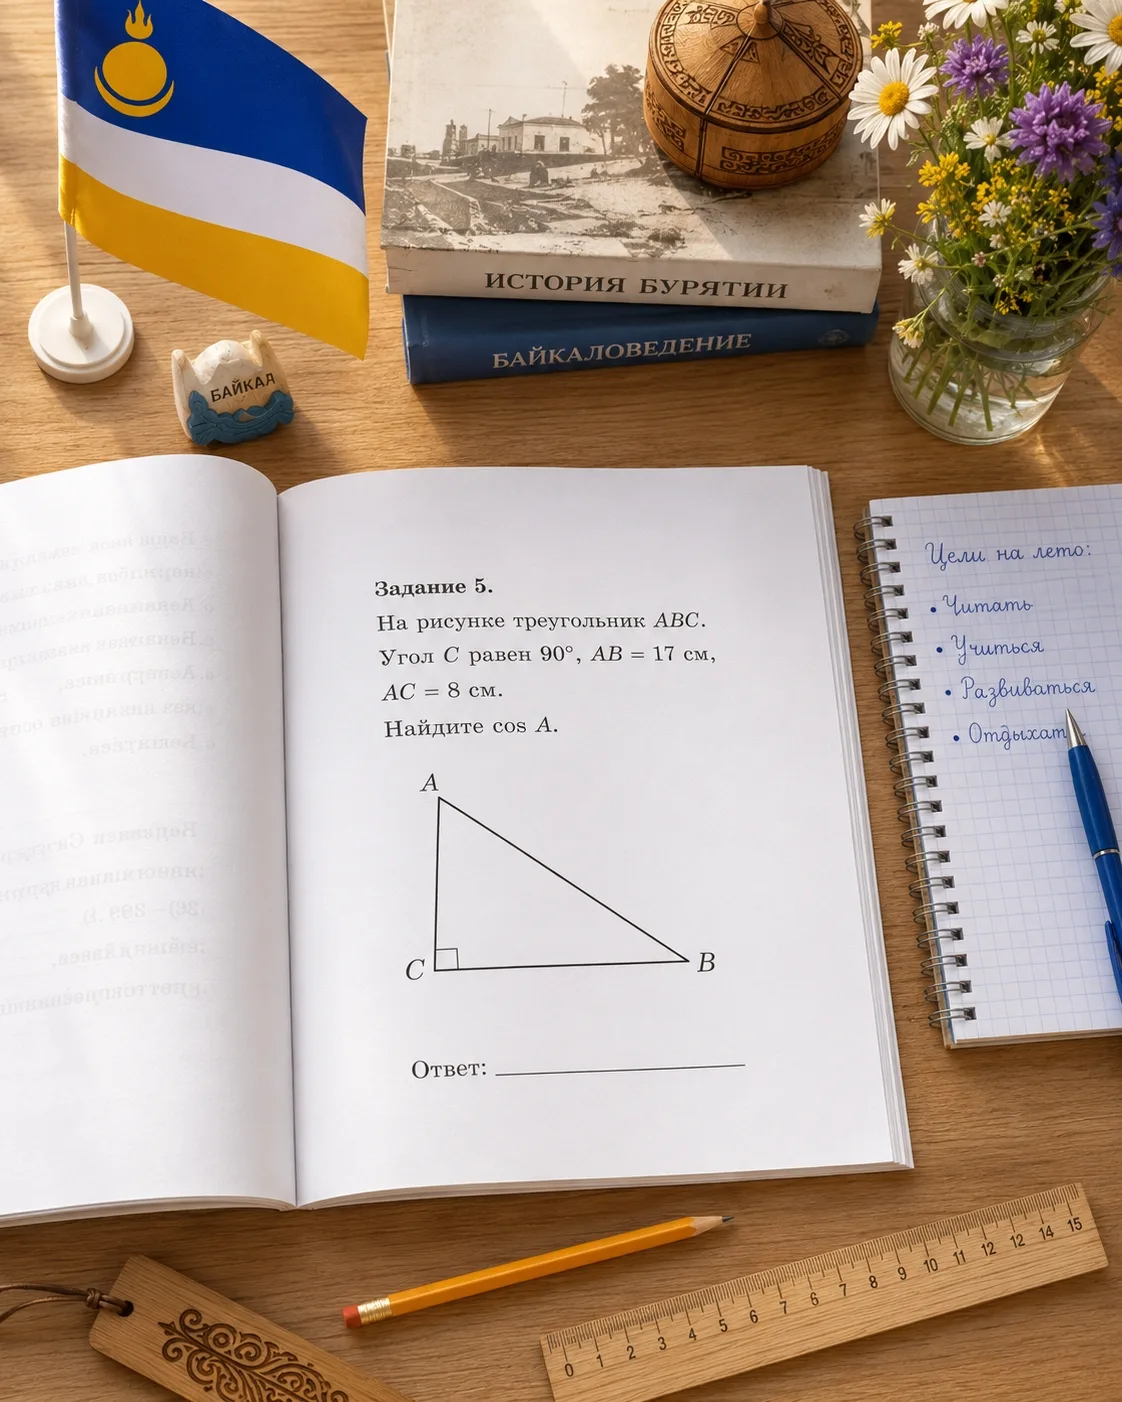 ИСТОРИЯ БУРЯТИИ
БАЙКАЛОВЕДЕНИЕ
БАЙКАЛ
Задание 5.
На рисунке треугольник ABC.
Угол C равен 90°, AB = 17 см,
AC = 8 см.
Найдите cos A.
A
C
B
Ответ:
Цели на лето:
• Читать
• Учиться
• Развиваться
• Отдыхат
0 1 2 3 4 5 6 7 6 7 8 9 10 11 12 12 14 15